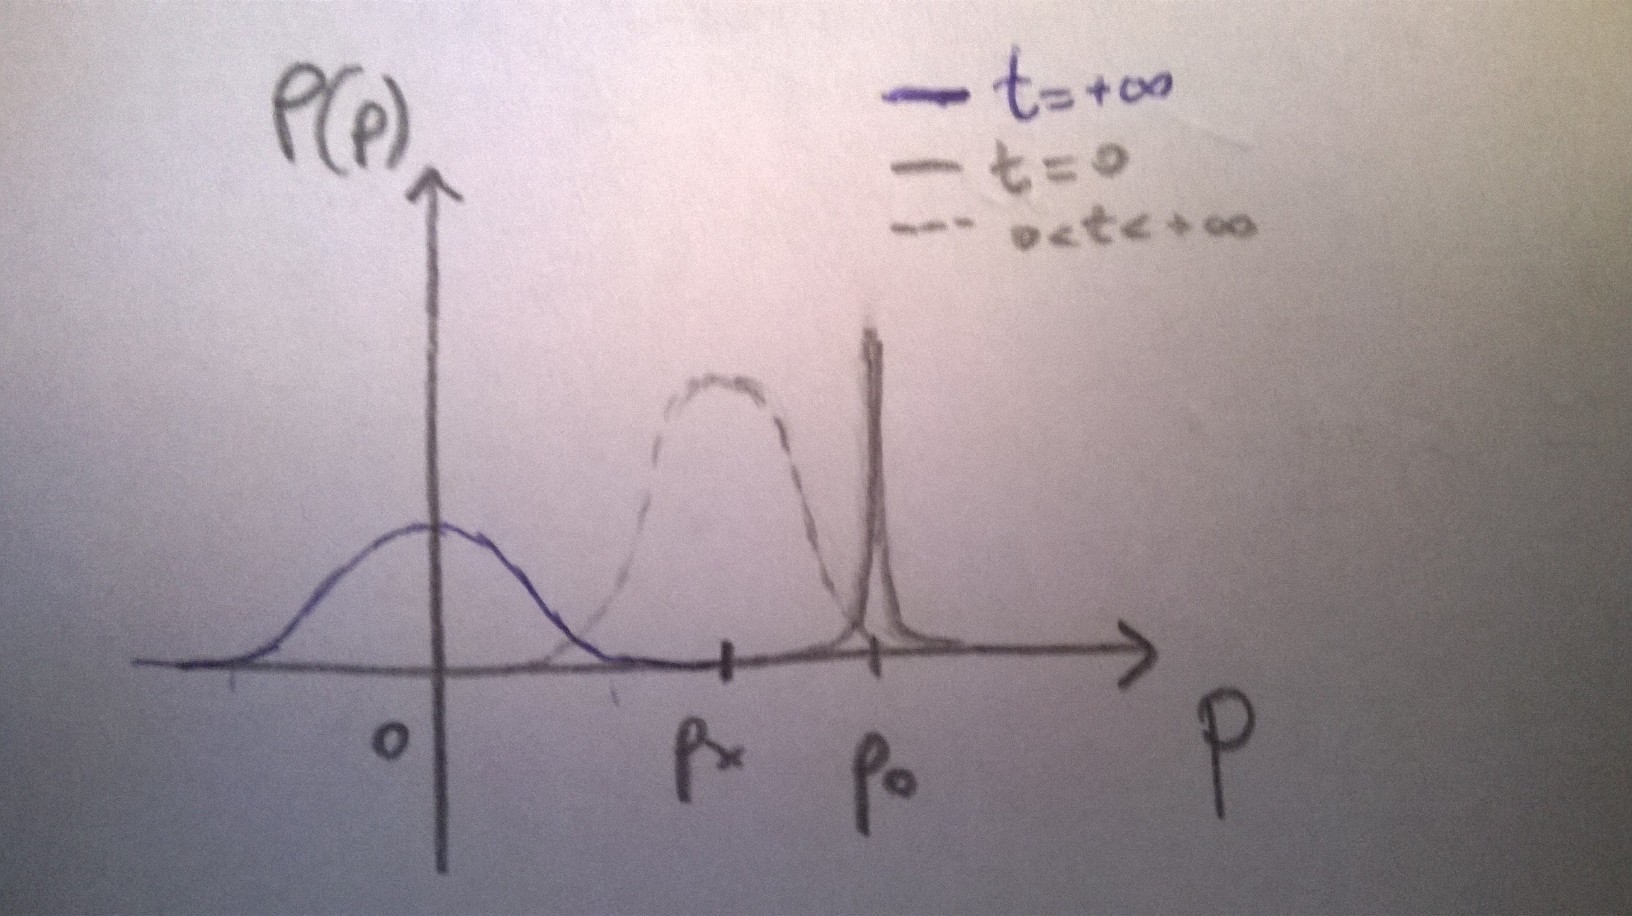 P(p)
t=+∞
t=0
0<t<+∞
0
px
p0
p